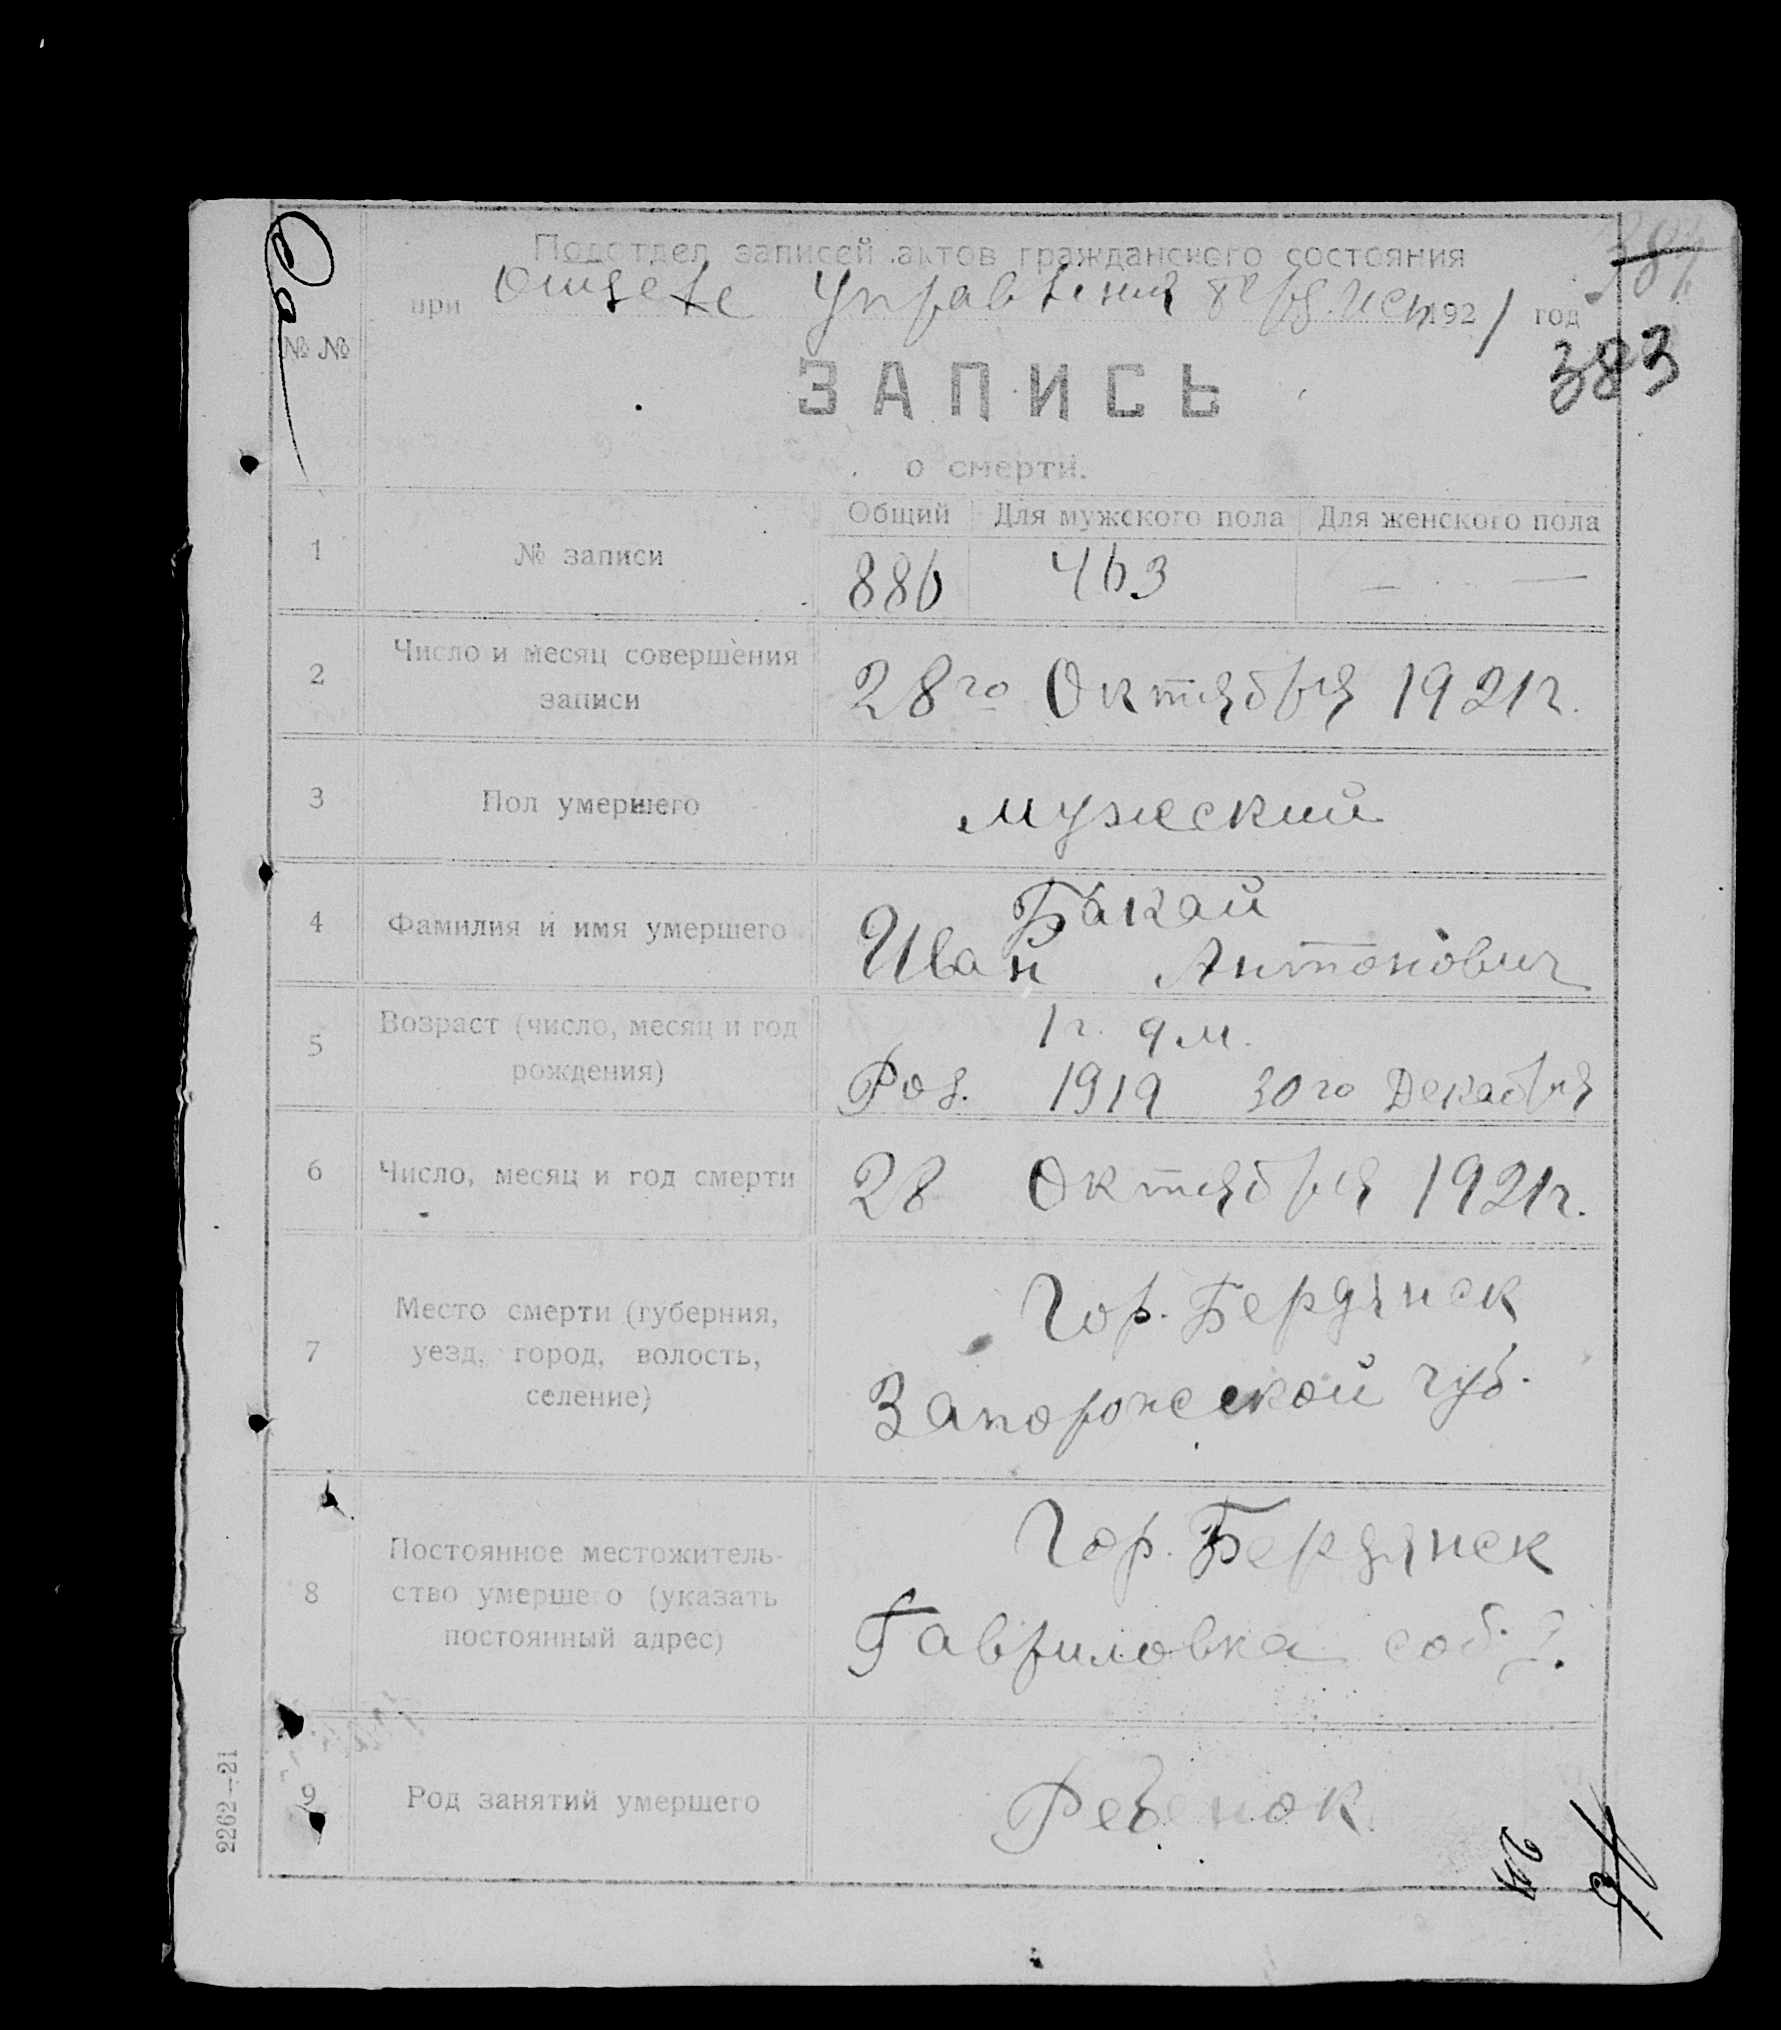 Подотдел записей актов гражданского состояния
при Отделе Управления Бердяг. Исп. 1921 год
383
№ №
ЗАПИСЬ
о смерти.
Общий Для мужского пола Для женского пола
1 № записи 886 463 — —
2 Число и месяц совершения
записи
28го Октября 1921г.
3 Пол умершего мужеский
4 Фамилия и имя умершего
Бакай
Иван Антонович
5 Возраст (число, месяц и год
рождения)
1 г. 9 м.
Род. 1919 30го Декабря
6 Число, месяц и год смерти 28 Октября 1921г.
7 Место смерти (губерния,
уезд, город, волость,
селение)
Гор. Бердянск
Запорожеской губ.
8 Постоянное местожитель-
ство умершего (указать
постоянный адрес)
Гор. Бердянск
Гавриловка соб.
9 Род занятий умершего Ребенок
2262—21